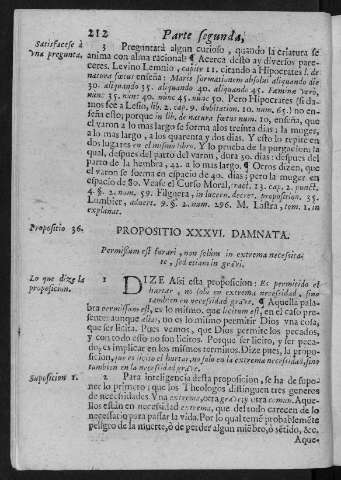 212 Parte segunda,
Satisfacese à vna pregunta.
3 Preguntarà algun curioso, quando la criatura se
anima con alma racional? ¶ Acerca desto ay diversos pare-
ceres. Levino Lemnio, capite 11. citando à Hipocrates l. de
natura fœtus enseña: Maris formationem absolvi aliquando die
30. aliquando 35. aliquando 40. aliquando 45. Fœminæ verò,
nunc 35. nunc 40. nunc 45. nunc 50. Pero Hipocrates (si da-
mos fee à Lesio, lib. 2. cap. 9. dubitation. 10. num. 65.) no en-
seña esso; porque in lib. de natura fœtus num. 10. enseña, que
el varon à lo mas largo se forma à los treinta dias; la muger,
à lo mas largo, à los quarenta y dos dias. Y esto lo repite en
dos lugares en el mismo libro. Y lo prueba de la purgacion: la
qual, despues del parto del varon, dura 30. dias: despues del
parto de la hembra, 42. à lo mas largo. ¶ Otros dizen, que
el varon se forma en espacio de 40. dias; pero la muger en
espacio de 80. Vease el Curso Moral, tract. 13. cap. 2. punct.
4. §. 2. num. 59. Filguera, in lucern. decret. proposition. 35.
Lumbier, ad ver. 9. §. 2. num. 296. M. Lastra, tom. 1. in
explanat.
Propositio 36.
PROPOSITIO XXXVI. DAMNATA.
Permissum est furari, non solùm in extrema necessita-
te, sed etiam in gravi.
Lo que dize la proposicion.
1 DIZE Assi esta proposicion: Es permitido el
hurtar, no solo en extrema necessidad, sino
tambien en necessidad grave. ¶ Aquella pala-
bra permissum est, es lo mismo, que licitum est, en el caso pre-
sente: aunque aliàs, no es lo mismo permitir Dios vna cosa,
que ser licita. Pues vemos, que Dios permite los pecados,
y con todo esso no son licitos. Porque ser licito, y ser peca-
do, es implicar en los mismos terminos. Dize pues, la propo-
sicion, que es licito el hurtar, no solo en la extrema necessidad, sino
tambien en la necessidad grave.
Suposicion 1.
2 Para inteligencia desta proposicion, se ha de supo-
ner lo primero: que los Theologos distinguen tres generos
de necessidades. Vna extrema, otra grave: y otra comun. Aque-
llos están en necessidad extrema, que del todo carecen de lo
necessario para passar la vida. Por lo qual temē probablemēte
peligro de la muerte, ò de perder algun miēbro, ò sētido, &c.
Aque-